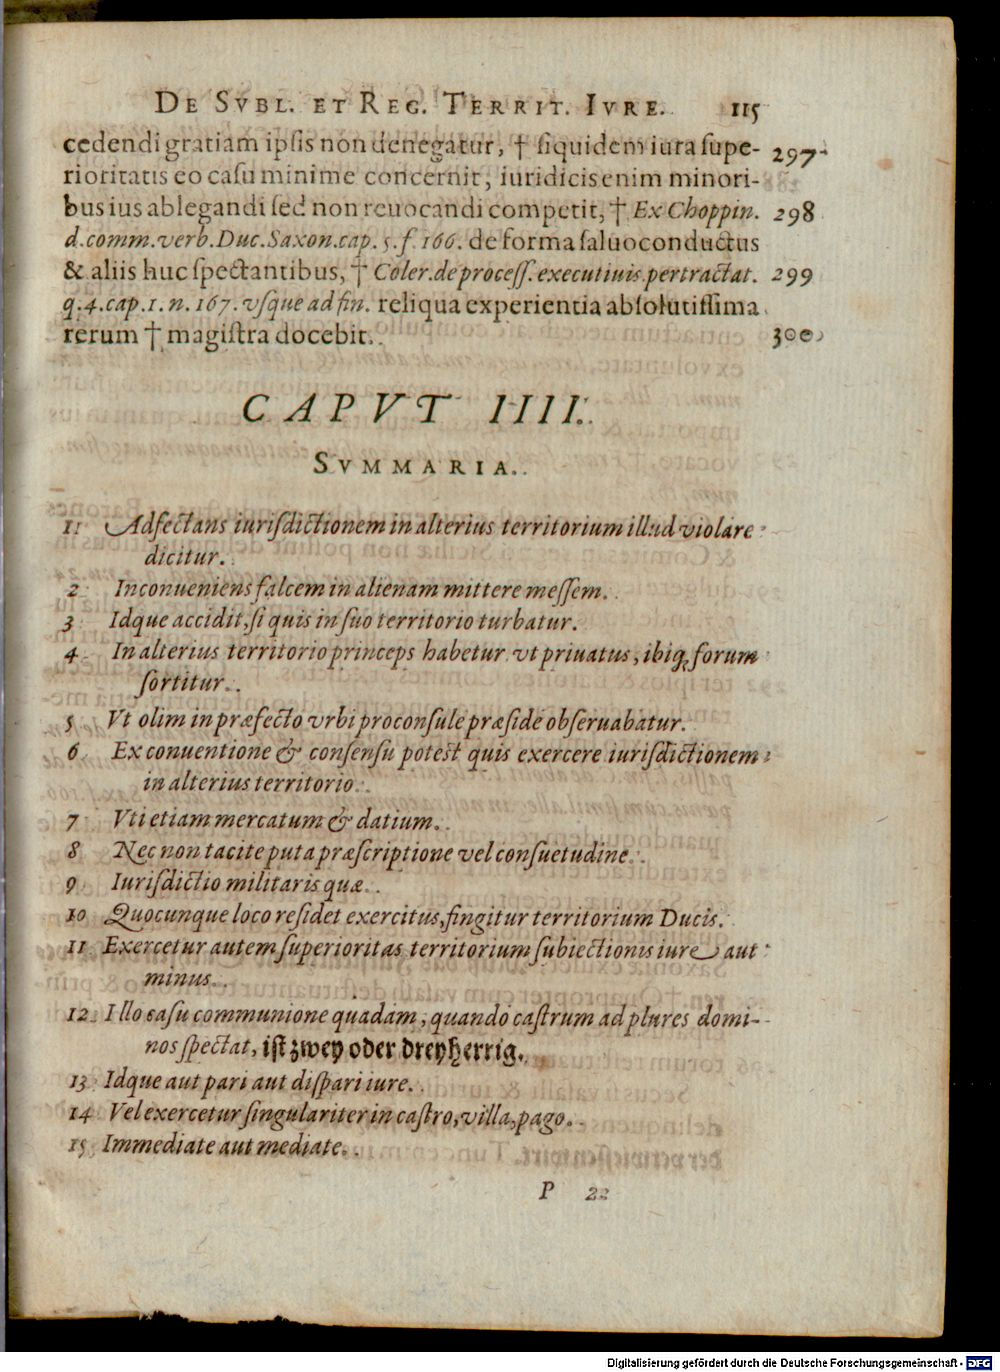 DE SVBL. ET REG. TERRIT. IVRE. 115
cedendi gratiam ipsis non denegatur, † siquidem iura supe- 297
rioritatis eo casu minime concernit, iuridicis enim minori-
bus ius ablegandi sed non reuocandi competit, † Ex Choppin. 298
d. comm. verb. Duc. Saxon. cap. 5. f. 166. de forma saluoconductus
& aliis huc spectantibus, † Coler. de process. executiuis pertractat. 299
q. 4. cap. 1. n. 167. vsque ad fin. reliqua experientia absolutissima
rerum † magistra docebit. 300
CAPVT IIII.
SVMMARIA.
1 Adfectans iurisdictionem in alterius territorium illud violare
dicitur.
2 Inconueniens falcem in alienam mittere messem.
3 Idque accidit, si quis in suo territorio turbatur.
4 In alterius territorio princeps habetur vt priuatus, ibiq; forum
sortitur.
5 Vt olim in præfecto vrbi proconsule præside obseruabatur.
6 Ex conuentione & consensu potest quis exercere iurisdictionem
in alterius territorio.
7 Vti etiam mercatum & datium.
8 Nec non tacite puta præscriptione vel consuetudine.
9 Iurisdictio militaris quæ.
10 Quocunque loco residet exercitus, fingitur territorium Ducis.
11 Exercetur autem superioritas territorium subiectionis iure aut
minus.
12 Illo casu communione quadam, quando castrum ad plures domi-
nos spectat, ist zwey oder dreyherrig.
13 Idque aut pari aut dispari iure.
14 Vel exercetur singulariter in castro, villa, pago.
15 Immediate aut mediate.
P 22
Digitalisierung gefördert durch die Deutsche Forschungsgemeinschaft - DFG